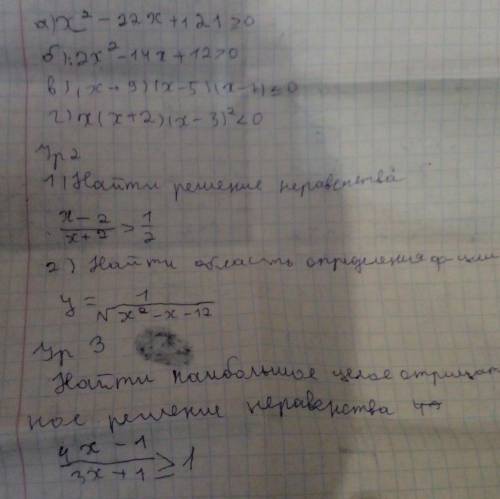 а) x² - 22x + 121 > 0
б) 2x² - 14x + 12 > 0
в) (x + 9)(x - 5)(x - 7) ≤ 0
г) x(x + 2)(x - 3)² < 0
Ур 2
1) Найти решение неравенства
x - 2 / x + 2 > 1/2
2) Найти область определения ф-ции
y = 1 / √(x² - x - 12)
Ур 3
Найти наибольшое целое отрицат
ное решение неравенства
4x - 1 / 3x + 1 ≥ 1